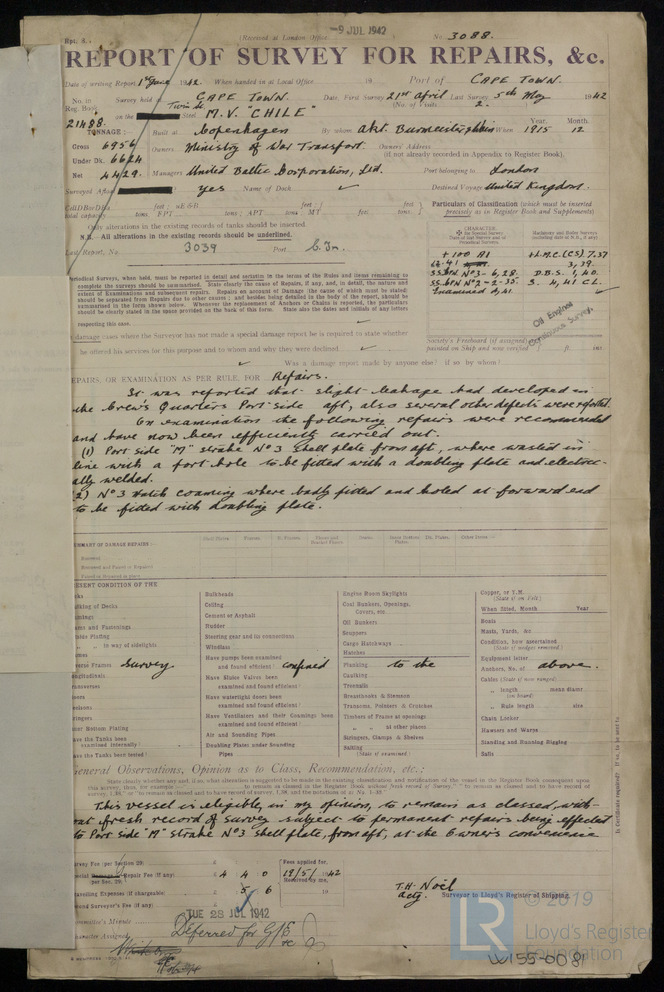 -9 JUL 1942
(Received at London Office
No. 3088.
REPORT OF SURVEY FOR REPAIRS, &c.
Date of writing Report 1st June 1942. When handed in at Local Office 19 Port of CAPE TOWN.
No. in Reg. Book Survey held at CAPE TOWN. Date, First Survey 21st April Last Survey 5th May 1942
(No. of Visits 2.
21488. on the Twin Sc. Steel M.V. "CHILE"
TONNAGE: Built at Copenhagen By whom Akt. Burmeister & Wain When 1915 12
Year. Month.
Gross 6956 Owners Ministry of War Transport. Owners' Address
(if not already recorded in Appendix to Register Book).
Under Dk. 6624
Net 4429. Managers United Baltic Corporation, Ltd. Port belonging to London
Surveyed Afloat yes Name of Dock Destined Voyage United Kingdom.
Particulars of Classification (which must be inserted precisely as in Register Book and Supplements)
Only alterations in the existing records of tanks should be inserted
N.B. All alterations in the existing records should be underlined.
Last Report, No. 3039 Port C.Tn.
+ 100 A1 +L.M.C.(CS) 7,37
12.41 3,39.
SS.CPN No 3 - 6,28. D.B.S. 1,40.
SS.CPN No 2 - 2.35. S. 4,41 CL.
Examined 4,41.
Oil Engines
Continuous Survey.
Periodical Surveys, when held, must be reported in detail and seriatim in the terms of the Rules and items remaining to
complete the surveys should be summarised. State clearly the causes of Repairs, if any, and, in detail, the nature and
extent of Examinations and subsequent repairs. Repairs on account of Damage (the cause of which must be stated)
should be separated from Repairs due to other causes; and besides being detailed in the body of the report, should be
summarised in the form shown. Whenever the Replacement of Anchors or Chains is reported, the particulars
should be clearly stated in the space provided on the back of this form. State also the dates and initials of any letters
respecting this case.
damage cases where the Surveyor has not made a special damage report he is required to state whether
he offered his services for this purpose and to whom and why they were declined
Society's Freeboard (if assigned) painted on Ship and now verified ft. ins.
Was a damage report made by anyone else? if so by whom?
REPAIRS, OR EXAMINATION AS PER RULE, FOR Repairs.
It was reported that slight leakage had developed in
the Crew's Quarters Port side aft, also several other defects were reported.
On examination the following repairs were recommended
and have now been efficiently carried out.
(1) Port side "M" strake No 3 Shell plate from aft, where wasted in
line with a port hole to be fitted with a doubling plate and electric-
ally welded.
2) No 3 Hatch coaming where badly pitted and holed at forward end
to be fitted with doubling plate.
SUMMARY OF DAMAGE REPAIRS:-
PRESENT CONDITION OF THE
Bulkheads
Ceiling
Cement or Asphalt
Rudder
Steering gear and its connections
Windlass
Have pumps been examined and found efficient?
Have Sluice Valves been examined and found efficient?
Have watertight doors been examined and found efficient?
Have Ventilators and their Coamings been examined and found efficient?
Air and Sounding Pipes
Doubling Plates under Sounding Pipes
Engine Room Skylights
Coal Bunkers, Openings, Covers, etc.
Oil Bunkers
Scuppers
Cargo Hatchways
Hatches
Planking
Caulking
Treenails
Breasthooks & Stemson
Transoms, Pointers & Crutches
Timbers of Frame at openings
" " at other places
Stringers, Clamps & Shelves
Salting
(State if examined)
Copper, or Y.M.
(State if on Felt)
When fitted, Month Year
Boats
Masts, Yards, &c.
Condition, how ascertained
(State if wedges removed)
Equipment letter
Anchors, No. of
Cables (State if now ranged)
" length mean diamr.
(on board)
" Rule length size
Chain Locker
Hawsers and Warps
Standing and Running Rigging
Sails
Survey confined to the above.
General Observations, Opinion as to Class, Recommendation, etc.:
This vessel is eligible, in my opinion, to remain as classed, with-
out fresh record of survey subject to permanent repairs being effected
to Port side "M" strake No 3 Shell plate, from aft, at the Owner's convenience
Survey Fee (per Section 29) £
Special Damage or Repair Fee (if any) (per Sec. 29) £ 4 4 0
Travelling Expenses (if chargeable) £ 5 6
Second Surveyor's Fee (if any) £
Fees applied for, 19/5/1942
Received by me, 19
T.H. Noël
actg. Surveyor to Lloyd's Register of Shipping
Committee's Minute TUE 28 JUL 1942
Character Assigned Deferred for G/S
LR © 2019
Lloyd's Register
Foundation
W155-0081